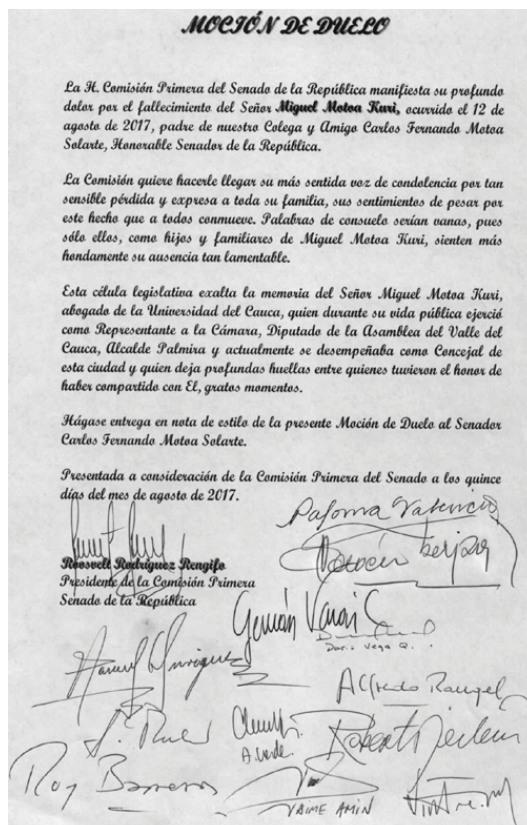 MOCIÓN DE DUELO
La H. Comisión Primera del Senado de la República manifiesta su profundo
dolor por el fallecimiento del Señor Miguel Motoa Kuri, ocurrido el 12 de
agosto de 2017, padre de nuestro Colega y Amigo Carlos Fernando Motoa
Solarte, Honorable Senador de la República.
La Comisión quiere hacerle llegar su más sentida voz de condolencia por tan
sensible pérdida y expresa a toda su familia, sus sentimientos de pesar por
este hecho que a todos conmueve. Palabras de consuelo serían vanas, pues
sólo ellos, como hijos y familiares de Miguel Motoa Kuri, sienten más
hondamente su ausencia tan lamentable.
Esta célula legislativa exalta la memoria del Señor Miguel Motoa Kuri,
abogado de la Universidad del Cauca, quien durante su vida pública ejerció
como Representante a la Cámara, Diputado de la Asamblea del Valle del
Cauca, Alcalde Palmira y actualmente se desempeñaba como Concejal de
esta ciudad y quien deja profundas huellas entre quienes tuvieron el honor de
haber compartido con El, gratos momentos.
Hágase entrega en nota de estilo de la presente Moción de Duelo al Senador
Carlos Fernando Motoa Solarte.
Presentada a consideración de la Comisión Primera del Senado a los quince
días del mes de agosto de 2017.
Paloma Valencia
Roosvelt Rodríguez Rengifo
Presidente de la Comisión Primera
Senado de la República
Germán Varón C
Doris Vega Q.
Manuel Enríquez
Alfredo Rangel
A. Verde.
Roberto Gerlein
Roy Barreras
JAIME AMIN